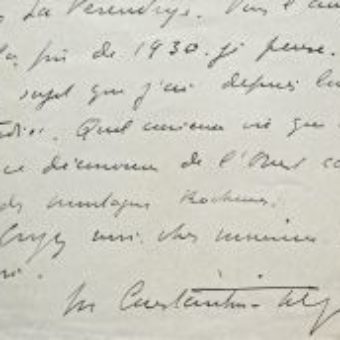 La Verendrye. Vous l'au
la fin de 1930. je pense.
sujet que j'ai depuis lon
Quel curieux vie que
ce découvreur de l'Ouest ca
des montagnes Rocheuses.
Croyez moi, cher monsieur
M. Constantin-Weyer